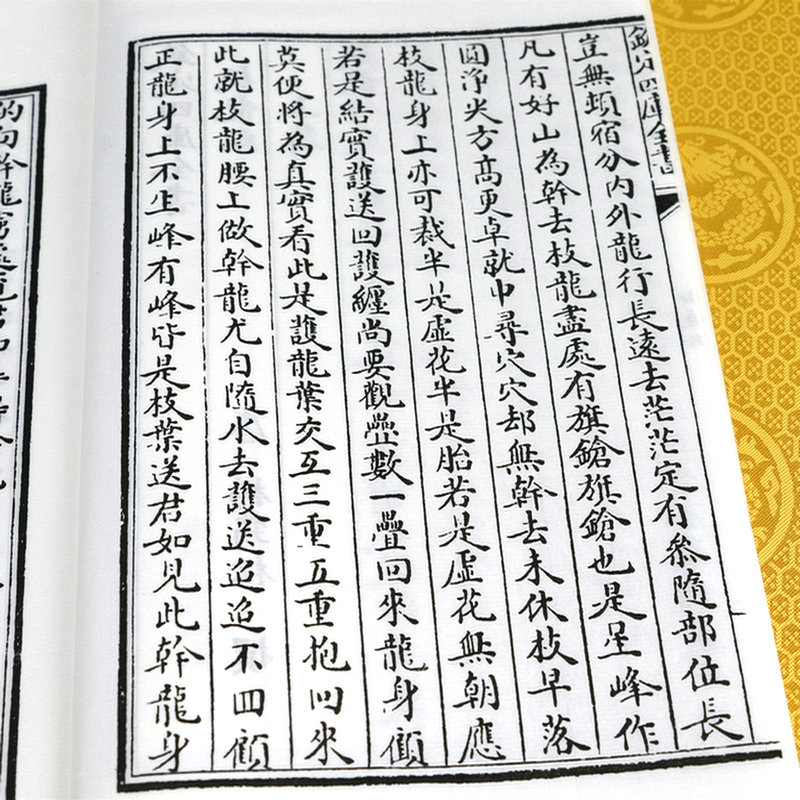 欽定四庫全書
豈無頓宿分內外龍行長遠去茫茫定有叅隨部位長
凡有好山為幹去枝龍盡處有旗鎗旗鎗也是星峰作
圓淨尖方髙更卓就中尋穴穴却無幹去未休枝早落
枝龍身上亦可裁半是虛花半是胎若是虛花無朝應
若是結實護送回護纏尚要觀疊數一疊回來龍身顧
莫便將為真實看此是護龍葉交互三重五重抱回來
此就枝龍腰上做幹龍尤自隨水去護送迢迢不回顧
正龍身上不生峰有峰皆是枝葉送君如見此幹龍身
的向幹龍窮